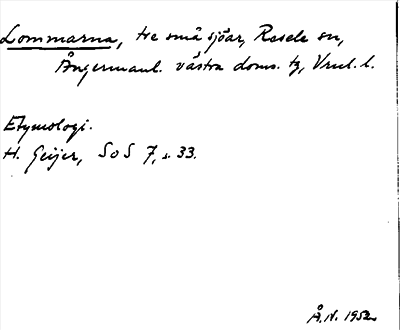 Lommarna, tre små sjöar, Resele sn,
Ångermanl. västra doms. tg, Vnrl. l.
Etymologi.
H. Geijer, SoS 7, s. 33.
Å.N. 1952